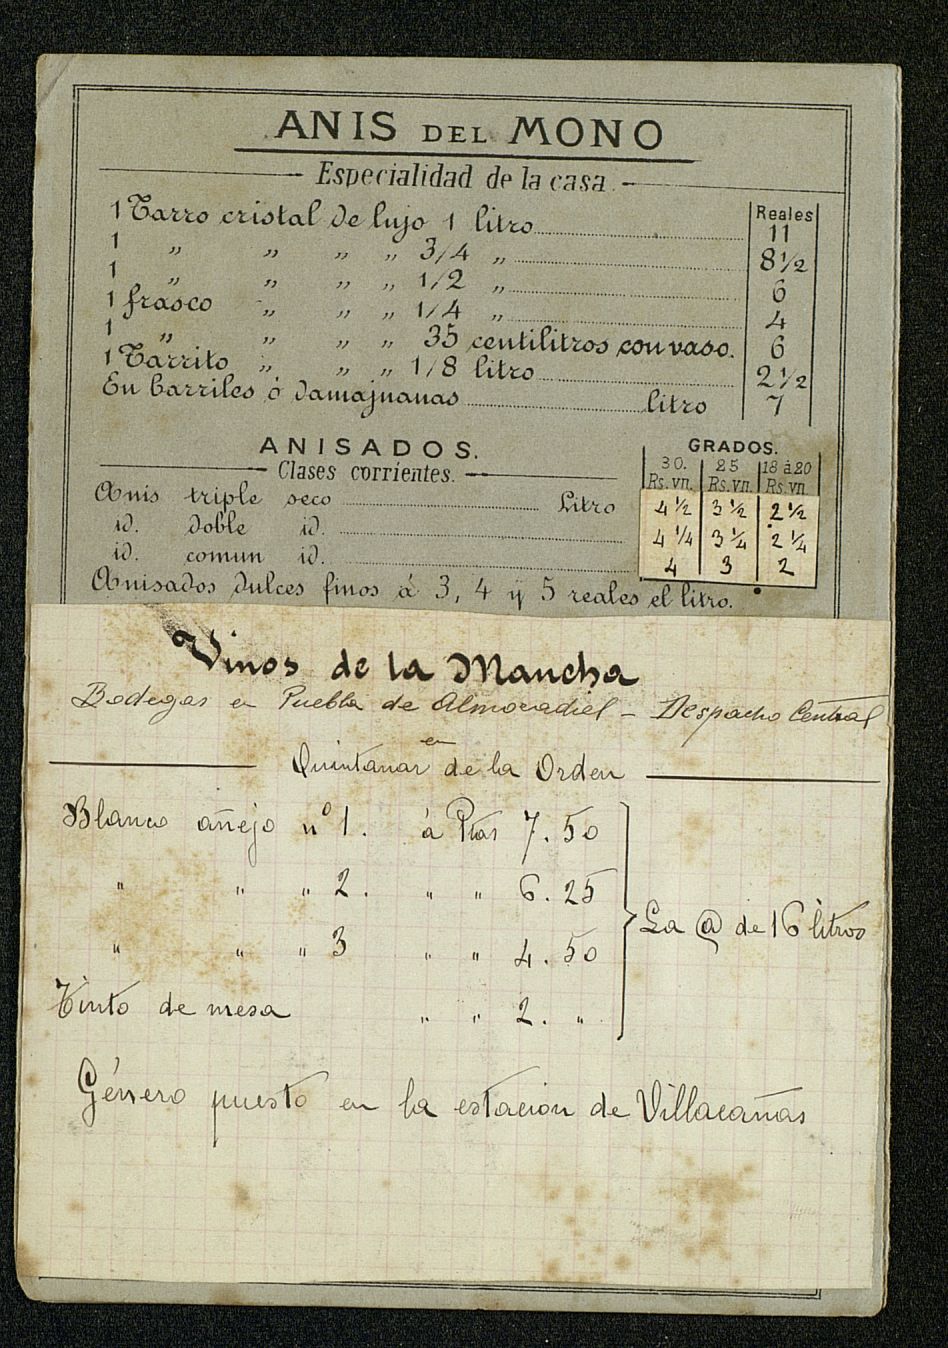 ANIS DEL MONO
Especialidad de la casa.
Reales
1 Tarro cristal de lujo 1 litro 11
1 „ „ „ „ 3/4 „ 8 1/2
1 „ „ „ „ 1/2 „ 6
1 frasco „ „ „ 1/4 „ 4
1 „ „ „ „ 35 centilitros con vaso. 6
1 Tarrito „ „ „ 1/8 litro 2 1/2
En barriles ó damajuanas litro 7
ANISADOS.
Clases corrientes.
GRADOS.
30. 25 18 á 20
Rs. vn. Rs. vn. Rs. vn.
Anis triple seco Litro 4 1/2 3 1/2 2 1/2
id. doble id. 4 1/4 3 1/4 2 1/4
id. comun id. 4 3 2
Anisados dulces finos á 3, 4 y 5 reales el litro.
Vinos de la Mancha
Bodegas en Puebla de Almoradiel - Despacho Central
en
Quintanar de la Orden
Blanco añejo nº 1. á Ptas 7.50
„ „ „ 2. „ „ 6.25
„ „ „ 3 „ „ 4.50
La @ de 16 litros
Tinto de mesa „ „ 2. „
Género puesto en la estación de Villacañas